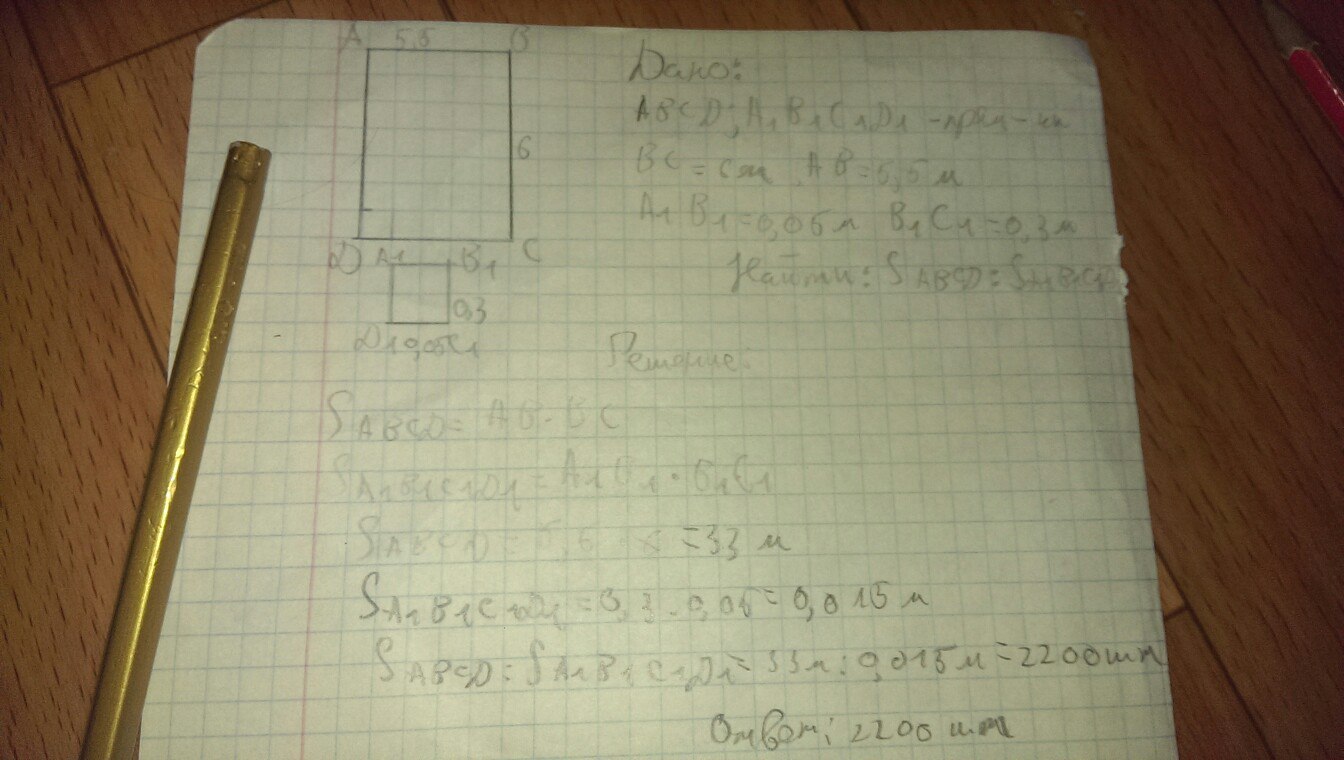 A 5,5 B
6
D C
A1 B1
0,3
D1 0,05 C1
Дано:
ABCD; A1B1C1D1 - прям-ки
BC = 6м, AB = 5,5 м
A1B1 = 0,05 м B1C1 = 0,3 м
Найти: SABCD : SA1B1C1D1
Решение:
SABCD = AB · BC
SA1B1C1D1 = A1B1 · B1C1
SABCD = 5,5 · 6 = 33 м
SA1B1C1D1 = 0,3 · 0,05 = 0,015 м
SABCD : SA1B1C1D1 = 33м : 0,015 м = 2200 шт
Ответ: 2200 шт